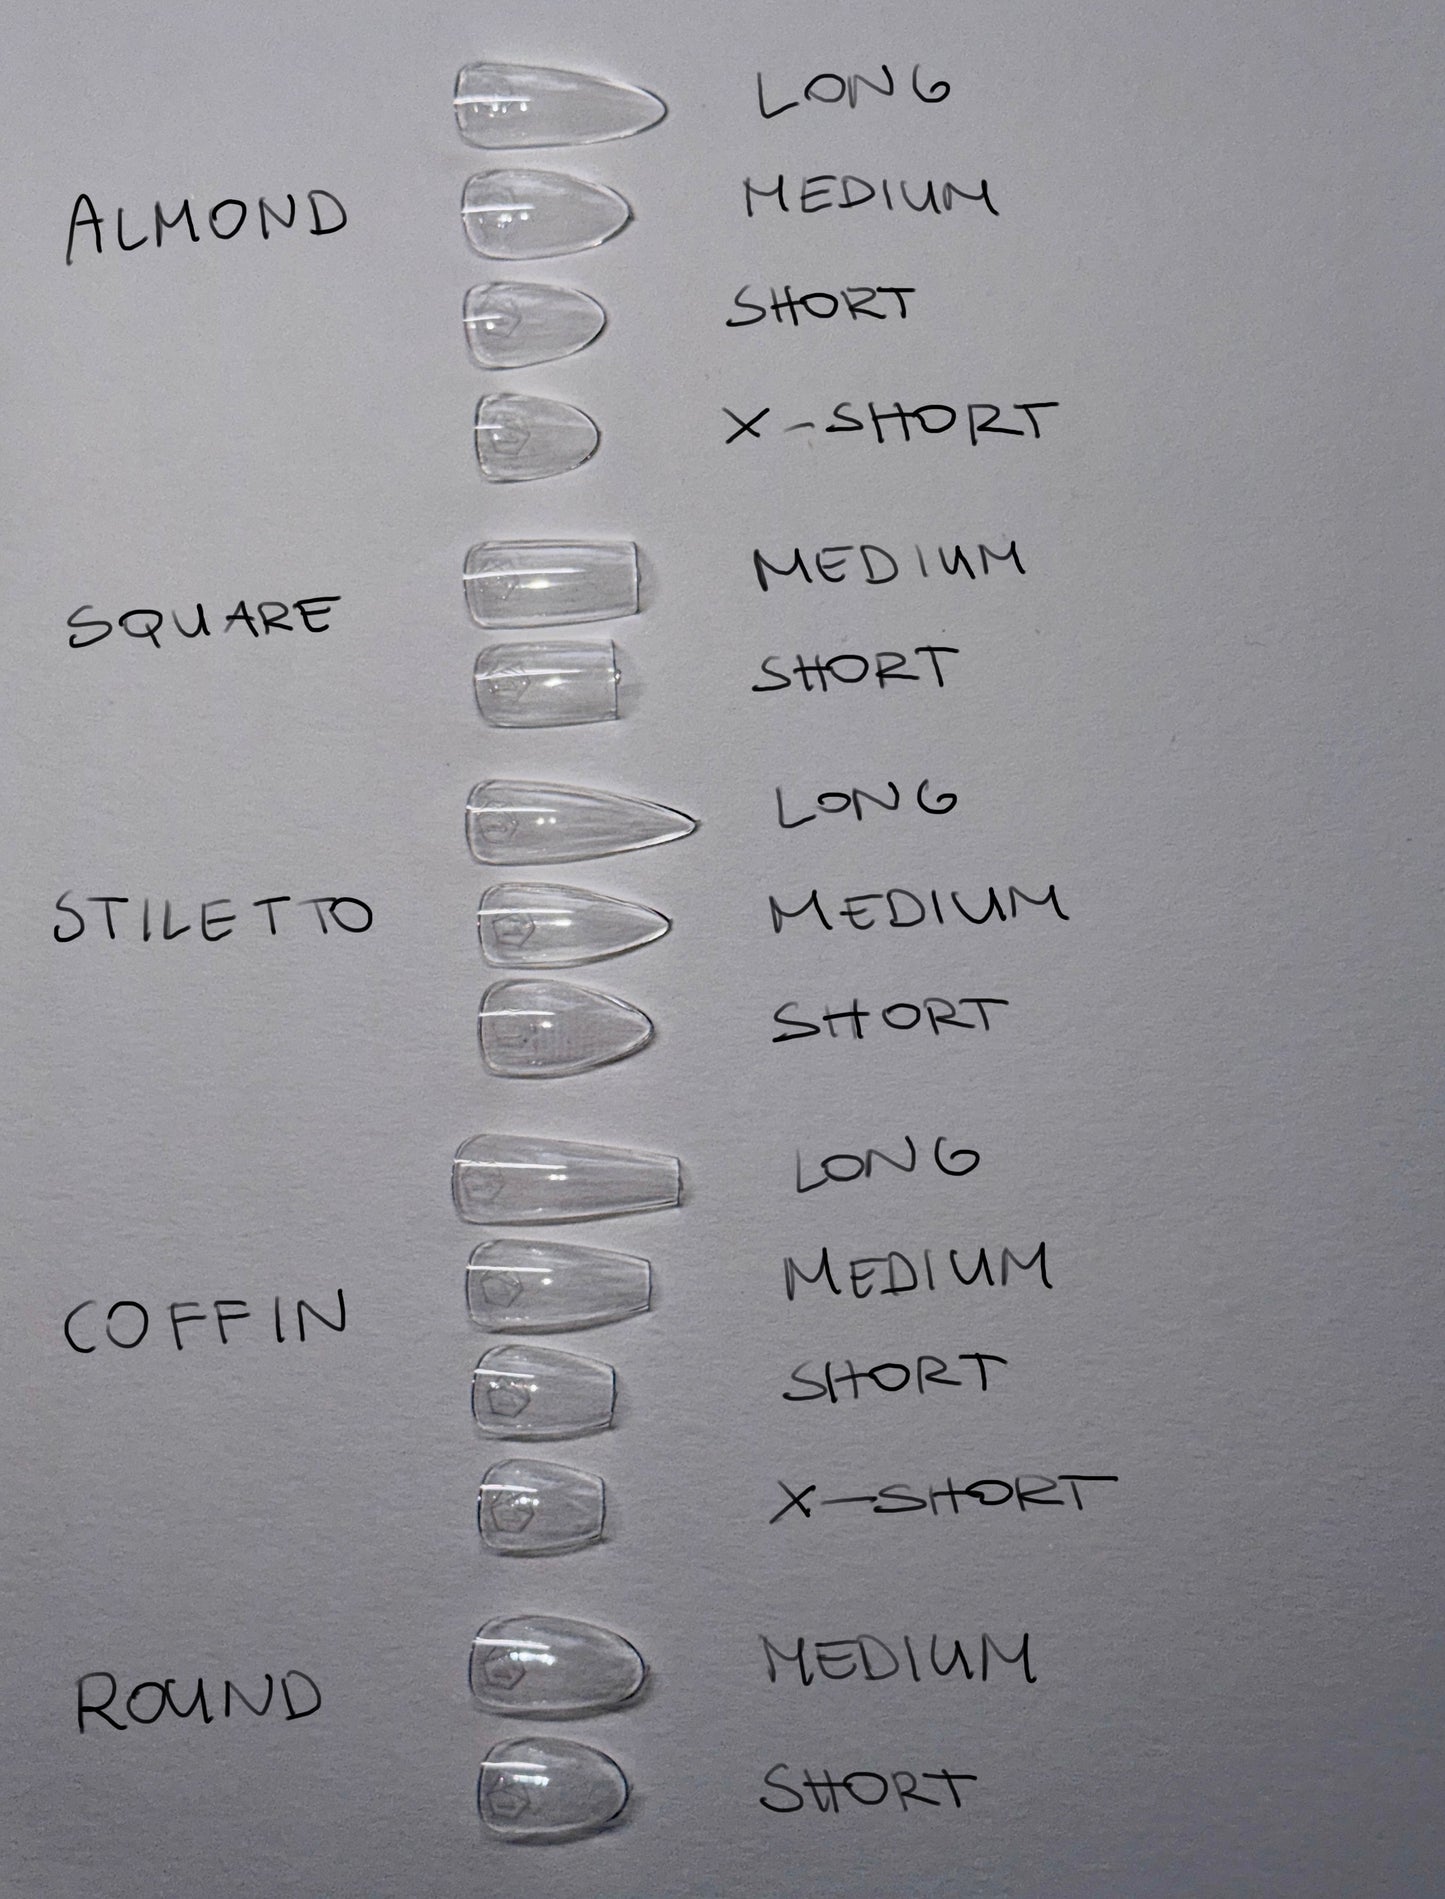 LONG
MEDIUM
ALMOND
SHORT
X-SHORT
MEDIUM
SQUARE
SHORT
LONG
MEDIUM
STILETTO
SHORT
LONG
MEDIUM
COFFIN
SHORT
X-SHORT
MEDIUM
ROUND
SHORT